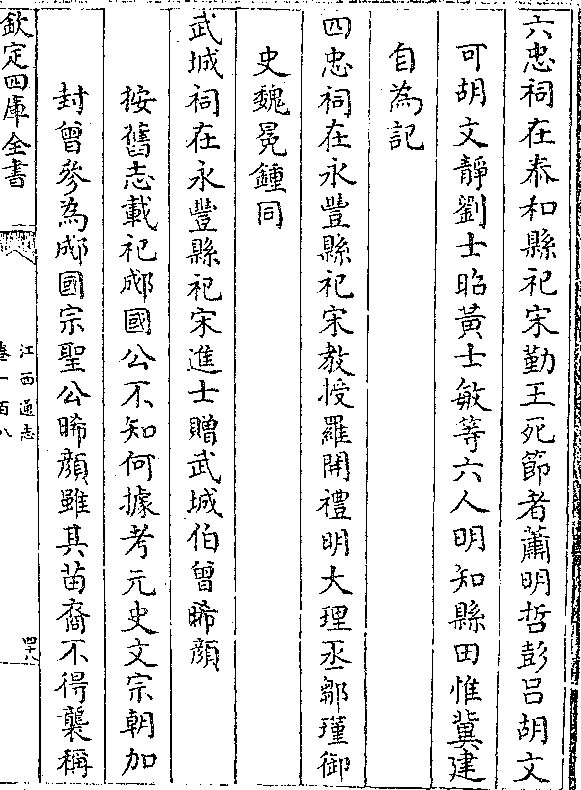 六忠祠在泰和縣祀宋勤王死節者蕭明哲彭呂胡文
可胡文靜劉士昭黃士敏等六人明知縣田惟冀建
自為記
四忠祠在永豐縣祀宋教授羅開禮明大理丞鄒瑾御
史魏冕鍾同
武城祠在永豐縣祀宋進士贈武城伯曾晞顏
按舊志載祀郕國公不知何據考元史文宗朝加
封曾參為郕國宗聖公晞顏雖其苗裔不得襲稱
欽定四庫全書
江西通志
卷一百八
四十八